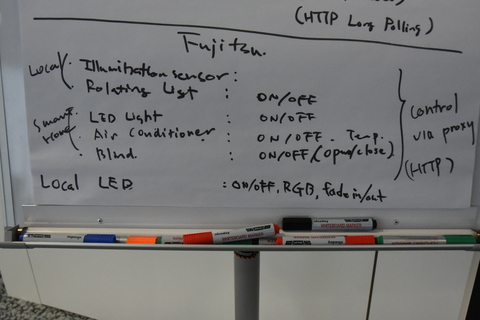 (HTTP Long Polling)
Fujitsu
Local
Illumination sensor :
Rotating Light : ON/OFF
Smart Home
LED Light : ON/OFF
Air Conditioner : ON/OFF. Temp.
Blind : ON/OFF (open/close)
Control via proxy (HTTP)
Local LED : ON/OFF, RGB, fade in/out